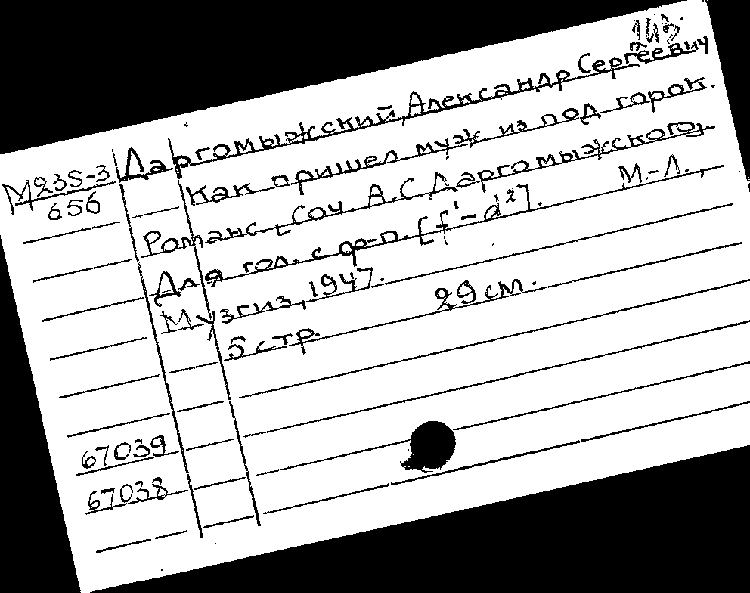 Даргомыжский, Александр Сергеевич
М235-3
656
Как пришел муж из под горок.
Романс. [Соч. А.С. Даргомыжского,
Для гол. с ф-п. [f¹-d²]. М.-Л.,
Музгиз, 1947.
5 стр. 29 см.
67039
67038